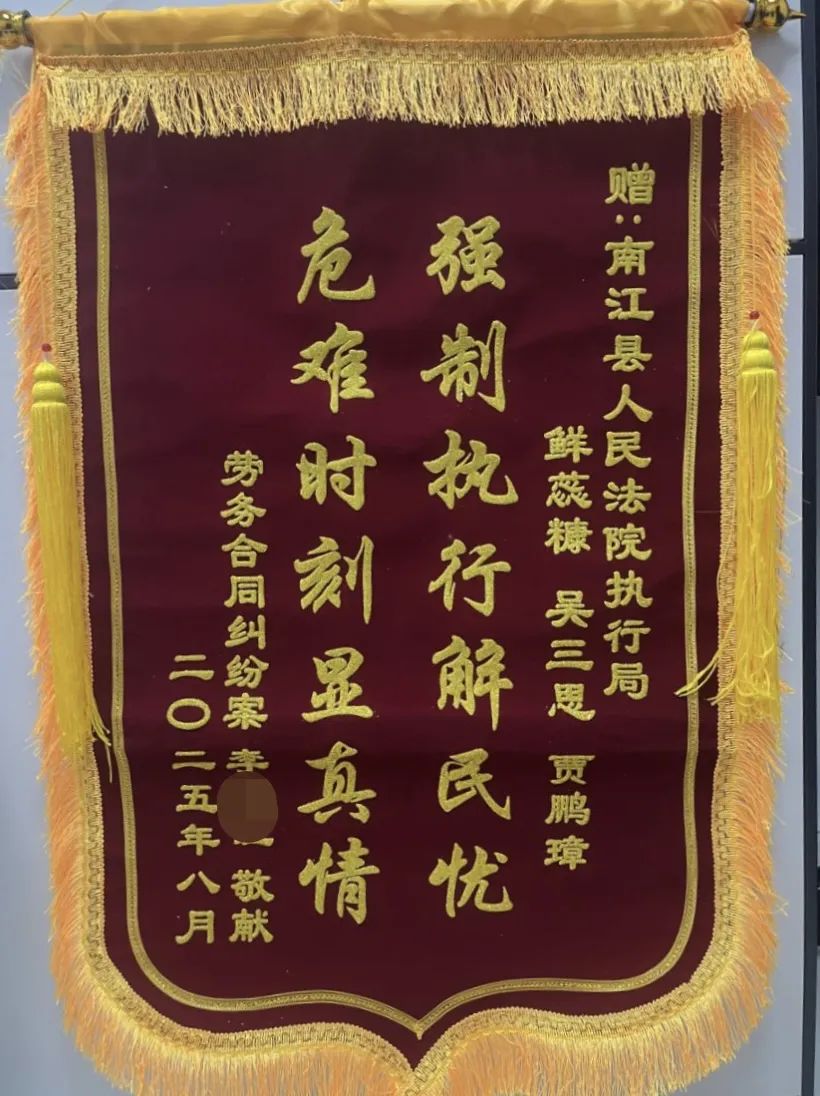 赠:南江县人民法院执行局
鲜蕊糠 吴三思 贾鹏璋
强制执行解民忧
危难时刻显真情
劳务合同纠纷案 李 敬献
二〇二五年八月